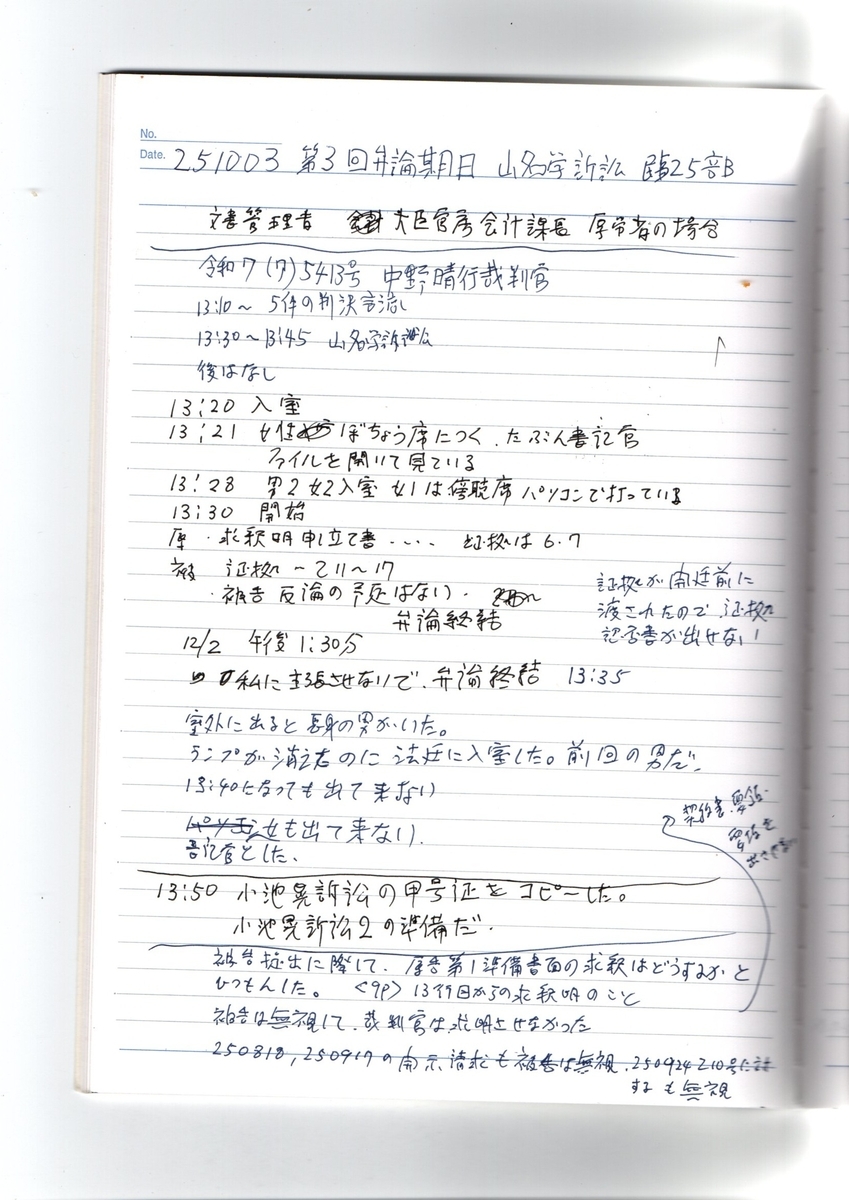 No.
Date. 251003 第3回弁論期日 山名学訴訟 民事25部B
文書管理者 大臣官房会計課長 厚労省の場合
令和7(ワ)5413号 中野晴行裁判官
13:10〜 5件の判決言渡し
13:30〜13:45 山名学訴訟
後はなし
13:20 入室
13:21 女性 ぼちょう席につく、たぶん書記官
ファイルを開いて見ている
13:28 男2女2入室 女1は傍聴席 パソコンで打っている
13:30 開始
原・求釈明申立て書‥‥ 証拠は6.7
被 証拠 乙11〜17
・被告 反論の予定はない。
弁論終結
証拠が開廷前に
渡されたので 証拠
認否書が出せない
12/2 午後1:30分
私に主張させないで、弁論終結 13:35
室外に出ると長身の男がいた。
ランプが消えたのに法廷に入室した。前回の男だ、
13:40になっても出て来ない
女も出て来ない、
書記官とした、
契約書、要領
13:50 小池晃訴訟の甲号証をコピーした。
小池晃訴訟2の準備だ・
被告提出に際して、原告第1準備書面の求釈はどうするかと
ひつもんした。 <9p> 13行目からの求釈明のこと
被告は無視して、裁判官は求明させなかった
250818, 250917の開示請求も被告は無視、250924 乙10号に対
するも無視